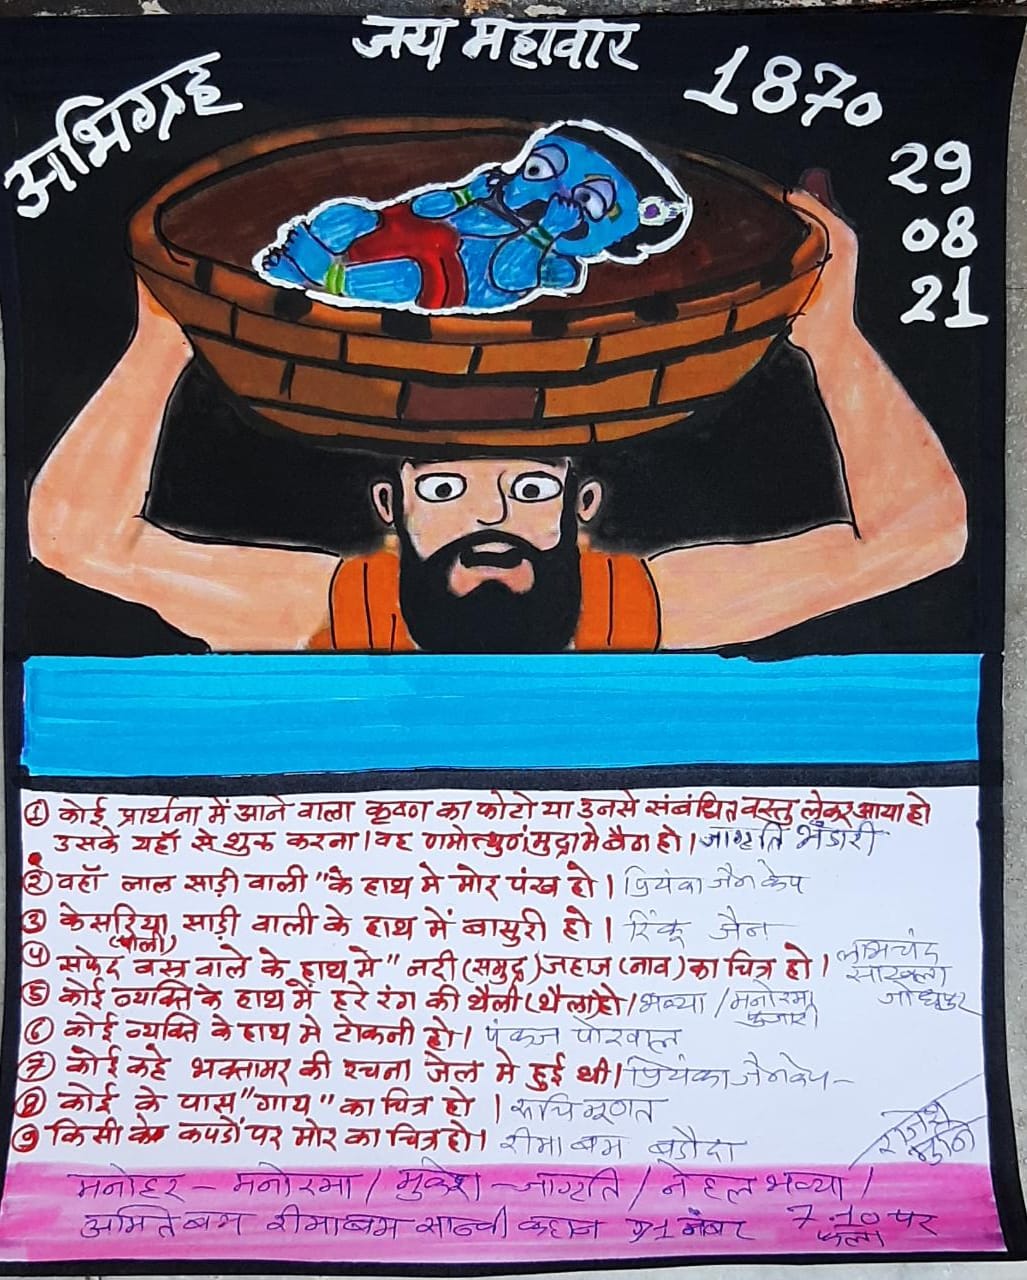 जय महावीर
अभिग्रह
1870
29
08
21
① कोई प्रार्थना में आने वाला कृष्ण का फोटो या उनसे संबंधित वस्तु लेकर आया हो
उसके यहाँ से शुरू करना। वह णमोत्थुणं मुद्रा मे बैठा हो। जागृति भंडारी
② वहाँ लाल साड़ी वाली "के हाथ मे मोर पंख हो। प्रियंका जैन
③ केसरिया साड़ी वाली के हाथ में बासुरी हो। रिंकू जैन
(पीली)
④ सफेद वस्त्र वाले के हाथ मे" नदी (समुद्र) जहाज (नाव) का चित्र हो। लाभचंद
जोधपुर
⑤ कोई व्यक्ति के हाथ में हरे रंग की थैली (थैला) हो। भव्या / मनोरमा
⑥ कोई व्यक्ति के हाथ मे टोकनी हो। पंकज पोरवाल
⑦ कोई कहे भक्तामर की रचना जेल मे हुई थी। प्रियंका जैन
⑧ कोई के पास "गाय" का चित्र हो।
⑨ किसी के कपडों पर मोर का चित्र हो। सीमा बम बड़ौदा
मनोहर - मनोरमा / मुकेश - जागृति / नेहल भव्या /
अमित बम सीमा बम साध्वी 91 नंबर 7.10 पर